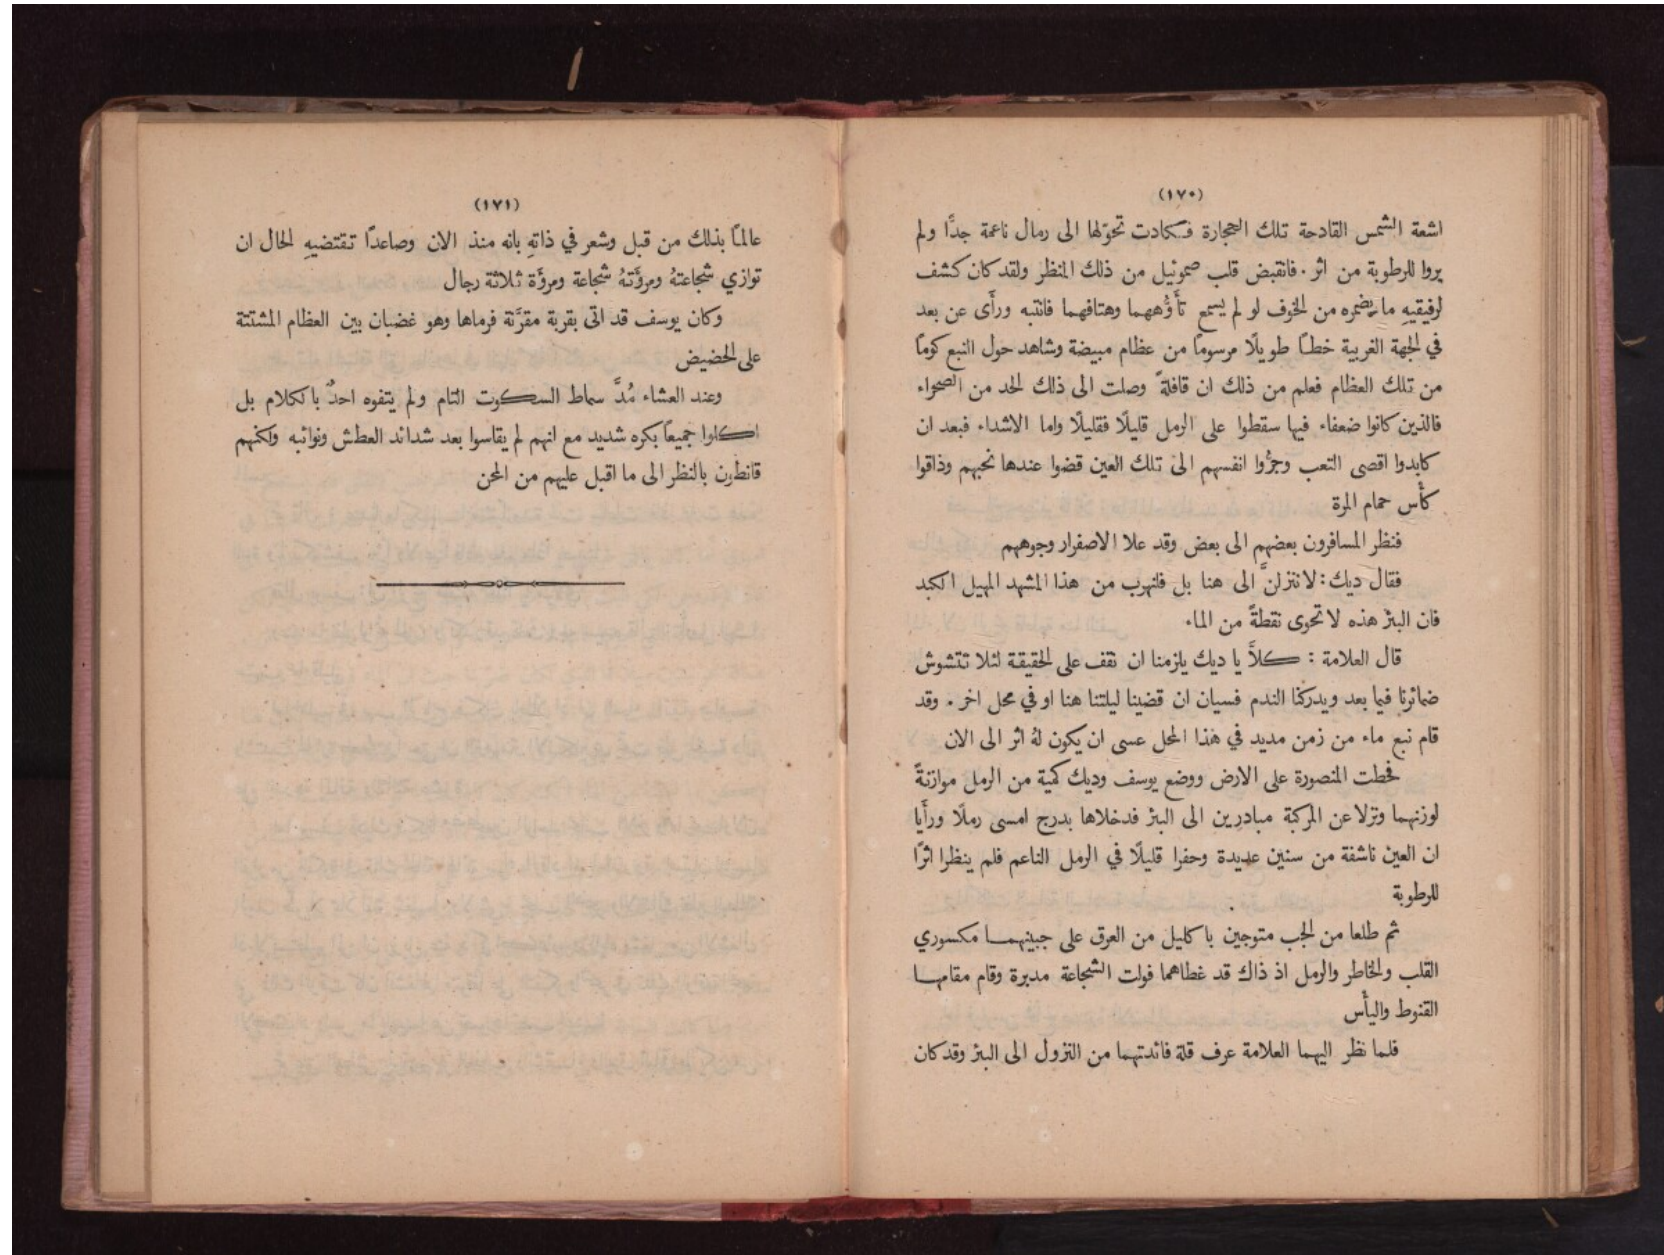 (١٧٠)
اشعة الشمس القادحة تلك الحجارة فكادت تحوّلها الى رمال ناعمة جدًّا ولم
يروا للرطوبة من اثر . فانقبض قلب صموئيل من ذلك المنظر ولقد كان كشف
لرفيقيهِ ما يضمره من الخوف لو لم يسمع تأَوُّههما وهتافهما فانتبه ورأَى عن بعد
في الجهة الغربية خطًا طويلًا مرسومًا من عظام مبيضة وشاهد حول النبع كومًا
من تلك العظام فعلم من ذلك ان قافلةً وصلت الى ذلك الحد من الصحراء
فالذين كانوا ضعفاء فيها سقطوا على الرمل قليلًا فقليلًا واما الاشداء فبعد ان
كابدوا اقصى التعب وجرُّوا انفسهم الى تلك العين قضوا عندها نحبهم وذاقوا
كأْس حمام المرة
فنظر المسافرون بعضهم الى بعض وقد علا الاصفرار وجوههم
فقال ديك : لا ننزلنَّ الى هنا بل فلنهرب من هذا المشهد المهيل الكبد
فان البئر هذه لا تحوى نقطةً من الماء
قال العلامة : كلاَّ يا ديك يلزمنا ان نقف على الحقيقة لئلا تتشوش
ضمائرنا فيما بعد ويدركنا الندم فسيان ان قضينا ليلتنا هنا او في محل اخر . وقد
قام نبع ماء من زمن مديد في هذا المحل عسى ان يكون لهُ اثر الى الان
فحطت المنصورة على الارض ووضع يوسف وديك كمية من الرمل موازنةً
لوزنهما ونزلا عن المركبة مبادرين الى البئر فدخلاها بدرج امسى رملًا ورأَيا
ان العين ناشفة من سنين عديدة وحفرا قليلًا في الرمل الناعم فلم ينظرا اثرًا
للرطوبة
ثم طلعا من الجب متوجين باكليل من العرق على جبينهما مكسوري
القلب والخاطر والرمل اذ ذاك قد غطاهما فولت الشجاعة مدبرة وقام مقامها
القنوط واليأْس
فلما نظر اليهما العلامة عرف قلة فائدتهما من النزول الى البئر وقد كان
(١٧١)
عالمًا بذلك من قبل وشعر في ذاتهِ بانه منذ الان وصاعدًا تقتضيهِ الحال ان
توازي شجاعتهُ ومروَّتهُ شجاعة ومروَّة ثلاثة رجال
وكان يوسف قد اتى بقربة مقرَّنة فرماها وهو غضبان بين العظام المشتتة
على الحضيض
وعند العشاء مُدَّ سماط السكوت التام ولم يتفوه احدٌ بالكلام بل
اكلوا جميعًا بكره شديد مع انهم لم يقاسوا بعد شدائد العطش ونوائبه ولكنهم
قانطون بالنظر الى ما اقبل عليهم من المحن